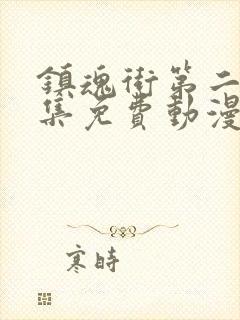 鎮魂街第二
集免費動漫
寒時